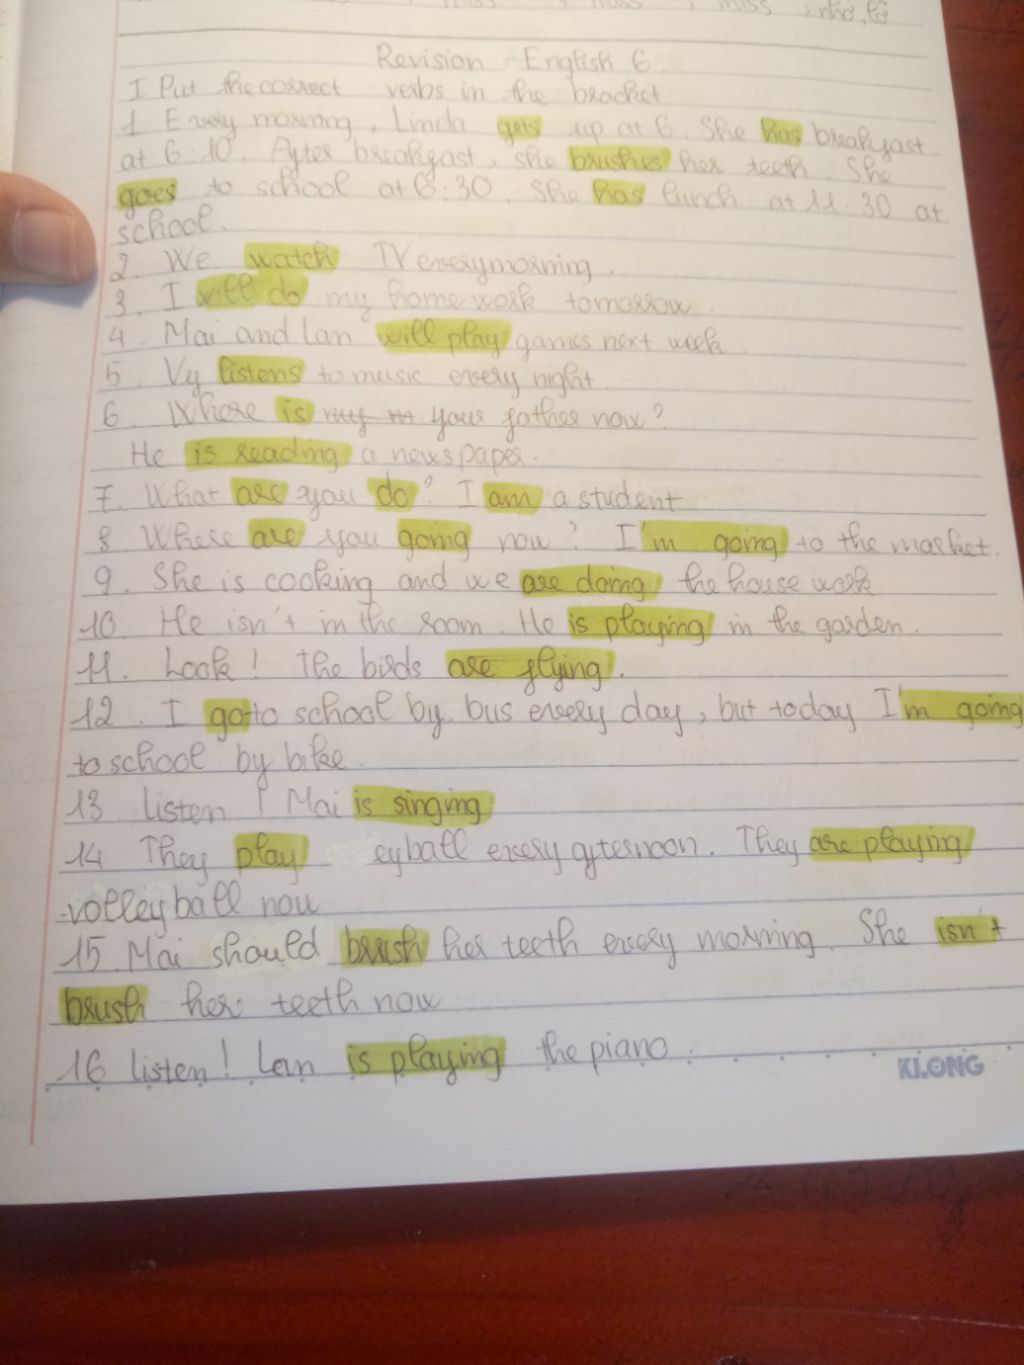 miss , miss , miss , nhớ, lỡ
Revision - English 6
I Put the correct verbs in the bracket
1 Every morning, Linda gets up at 6. She has breakfast
at 6:10. After breakfast, she brushes her teeth She
goes to school at 6:30. She has lunch at 11.30 at
school.
2. We watch TV every morning.
3. I will do my home work tomorrow
4. Mai and lan will play games next week
5. Vy listens to music every night.
6. Where is your father now?
He is reading a newspaper.
7. What are you do? I am a student
8 Where are you going now? I'm going to the market.
9. She is cooking and we are doing the house work
10. He isn't in the room. He is playing in the garden.
11. Look! The birds are flying.
12. I go to school by bus every day, but today I'm going
to school by bike.
13. listen! Mai is singing
14 They play eyball every afternoon. They are playing
volleyball now
15. Mai should brush her teeth every morning. She isn't
brush her teeth now
16 listen! Lan is playing the piano.
KLONG